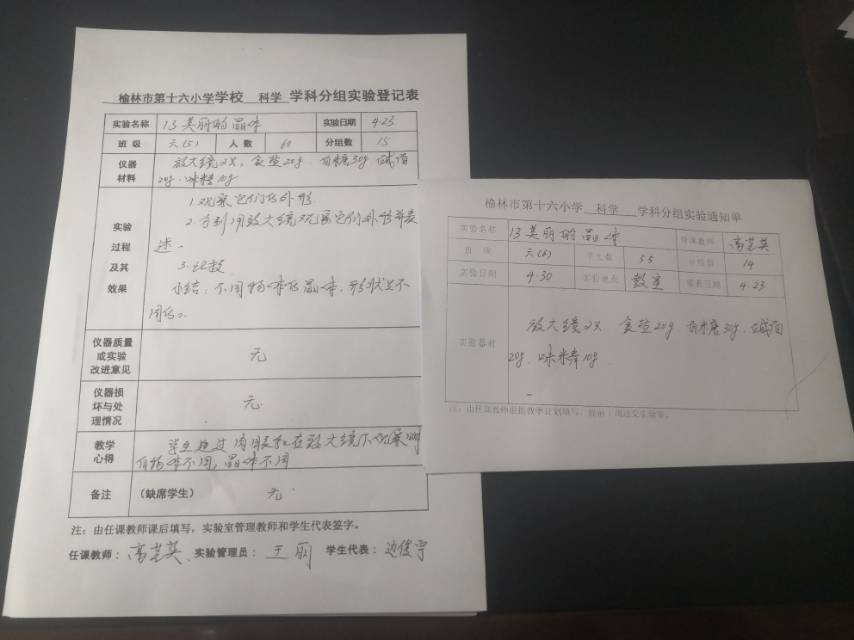 榆林市第十六小学学校 科学 学科分组实验登记表
实验名称 13美丽的晶体 实验日期 4.23
班级 六(5) 人数 60 分组数 15
仪器材料 放大镜2X,食盐20g 白糖30g 碱面
20g 味精10g
实验过程及其效果
1.观察它们的外形
2.分别用放大镜观察它们外形并表
述。
3.比较
小结:不同物体的晶体,形状上不
同的。
仪器质量或实验改进意见 无
仪器损坏与处理情况 无
教学心得 学生通过肉眼和在放大镜下观察
物体不同,晶体不同
备注 (缺席学生) 无
注:由任课教师课后填写,实验室管理教师和学生代表签字。
任课教师:高芝英 实验管理员:王丽 学生代表:边俊宇
榆林市第十六小学 科学 学科分组实验通知单
实验名称 13美丽的晶体 任课教师 高芝英
班级 六(6) 学生数 55 分组数 14
实验日期 4.30 实验地点 教室 4.23
实验器材 放大镜2X 食盐20g 白糖30g 碱面
20g 味精10g
注:由任课教师根据教学计划填写,提前一周送交实验室。